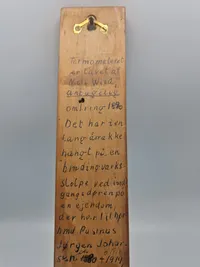 Termometeret
er lavet af
Niels Wiid,
omkring 18
Det har i en
lang årrække
hængt på en
bindingsværks
stolpe ved ind
gangsdøren på
en ejendom,
der har tilhørt
Rasmus
Jørgen Johan
sen + 1919